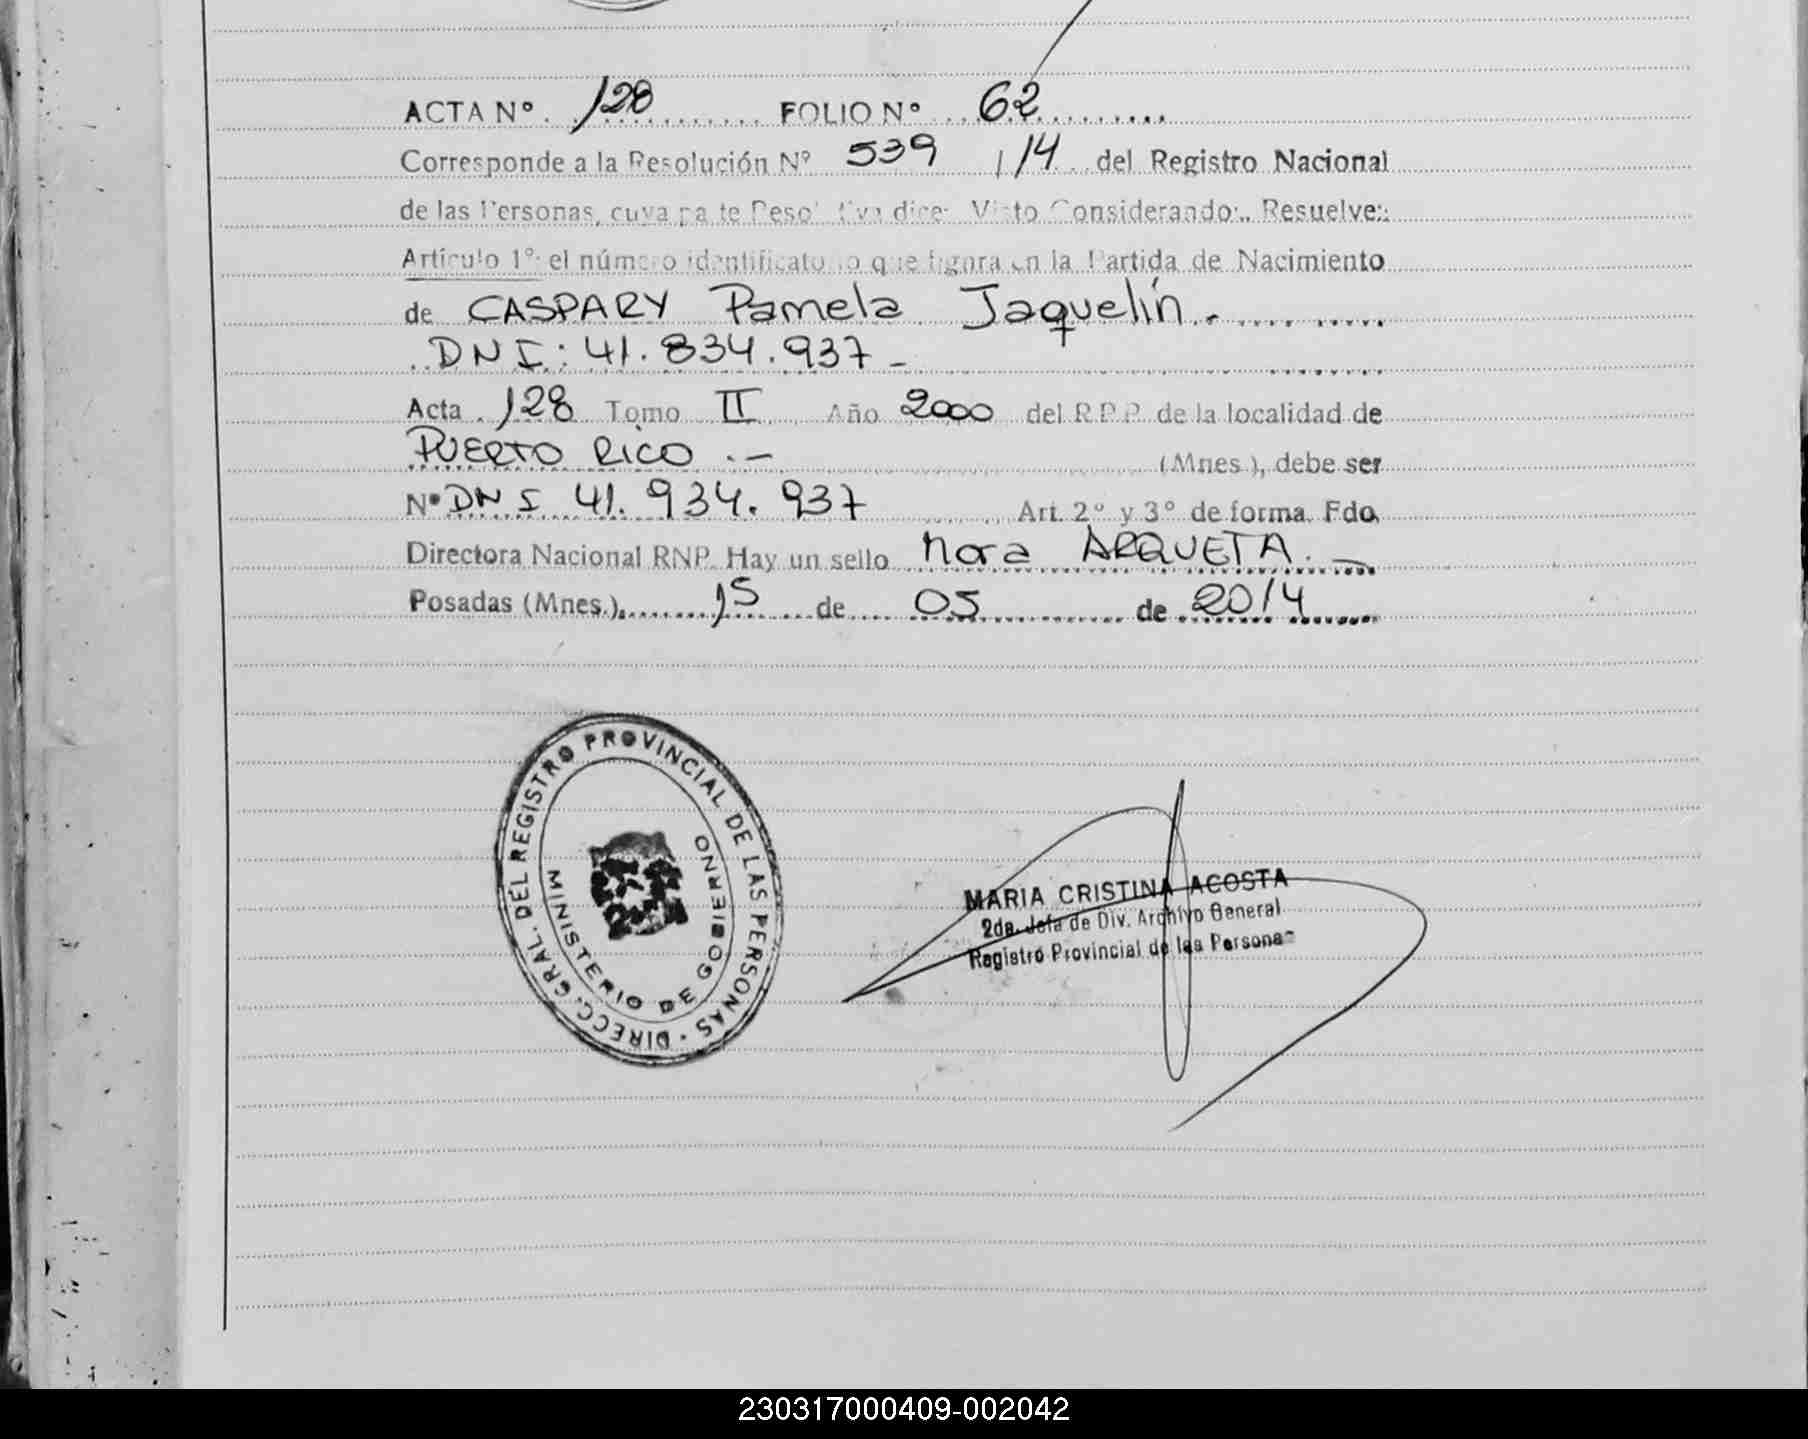 ACTA Nº 128 FOLIO Nº 62
Corresponde a la Resolución Nº 539 / 14 del Registro Nacional
de las Personas, cuya parte Resol dice: Visto Considerando: Resuelve:
Artículo 1º: el número identificatorio que figura en la Partida de Nacimiento
de CASPARY Pamela Jaquelín.-
DNI: 41.834.937 -
Acta 128 Tomo II Año 2000 del R.P.P. de la localidad de
PUERTO RICO .- (Mnes.), debe ser
Nº DNI 41.934.937 Art. 2º y 3º de forma. Fdo.
Directora Nacional RNP. Hay un sello Nora ARQUETA. -
Posadas (Mnes.), 15 de 05 de 2014
DIRECC. GRAL. DEL REGISTRO PROVINCIAL DE LAS PERSONAS ·
MINISTERIO DE GOBIERNO
MARIA CRISTINA ACOSTA
2da. Jefa de Div. Archivo General
Registro Provincial de las Personas
230317000409-002042